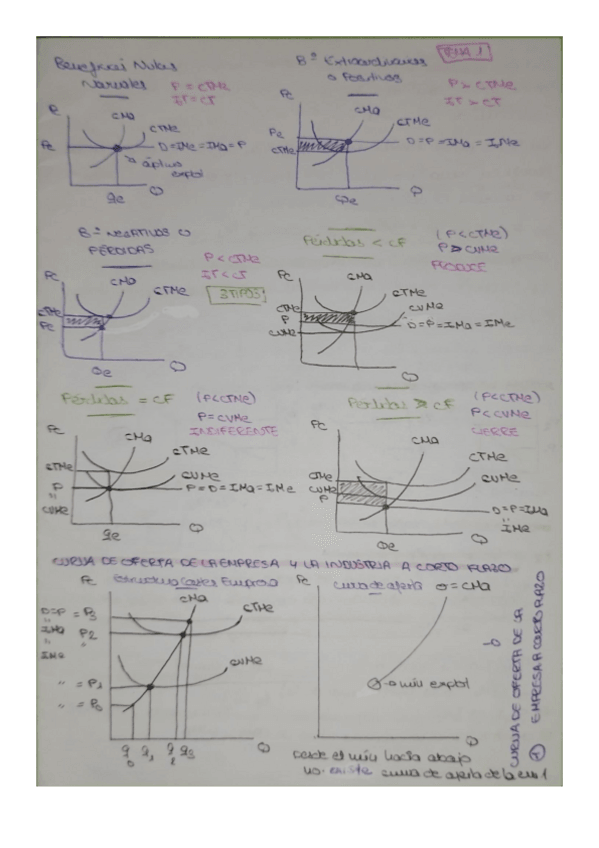 TEMA 1
Beneficios Nulos
Normales
P = CTMe
IT = CT
Pe
CMa
CTMe
Pe
D = IMe = IMa = P
óptimo
explot
qe
Q
Bº Extraordinarios
o Positivos
P > CTMe
IT > CT
Pe
CMa
CTMe
Pe
CTMe
D = P = IMa = IMe
Qe
Q
Bº NEGATIVOS O
PÉRDIDAS
P < CTMe
IT < CT
3 TIPOS
Pe
CMa
CTMe
CTMe
Pe
Qe
Q
Pérdidas < CF
(P < CTMe)
P > CVMe
PRODUCE
Pe
CMa
CTMe
CVMe
CTMe
P
CVMe
D = P = IMa = IMe
Qe
Q
Pérdidas = CF
(P < CTMe)
P = CVMe
INDIFERENTE
Pe
CMa
CTMe
CVMe
CTMe
P
"
CVMe
P = D = IMa = IMe
qe
Q
Pérdidas > CF
(P < CTMe)
P < CVMe
CIERRE
Pe
CMa
CTMe
CVMe
CTMe
CVMe
P
D = P = IMa
"
IMe
Qe
Q
CURVA DE OFERTA DE LA EMPRESA Y LA INDUSTRIA A CORTO PLAZO
Pe
Estructura Costes Empresa
CMa
CTMe
CVMe
D = P = P3
"
IMa P2
"
IMe
" = P1
" = P0
q0 q1 q2 q3
Q
Pe
curva de oferta
O = CMa
mín explot
Q
Desde el mín hacia abajo
no existe curva de oferta de la
CURVA DE OFERTA DE LA
EMPRESA A CORTO PLAZO
1